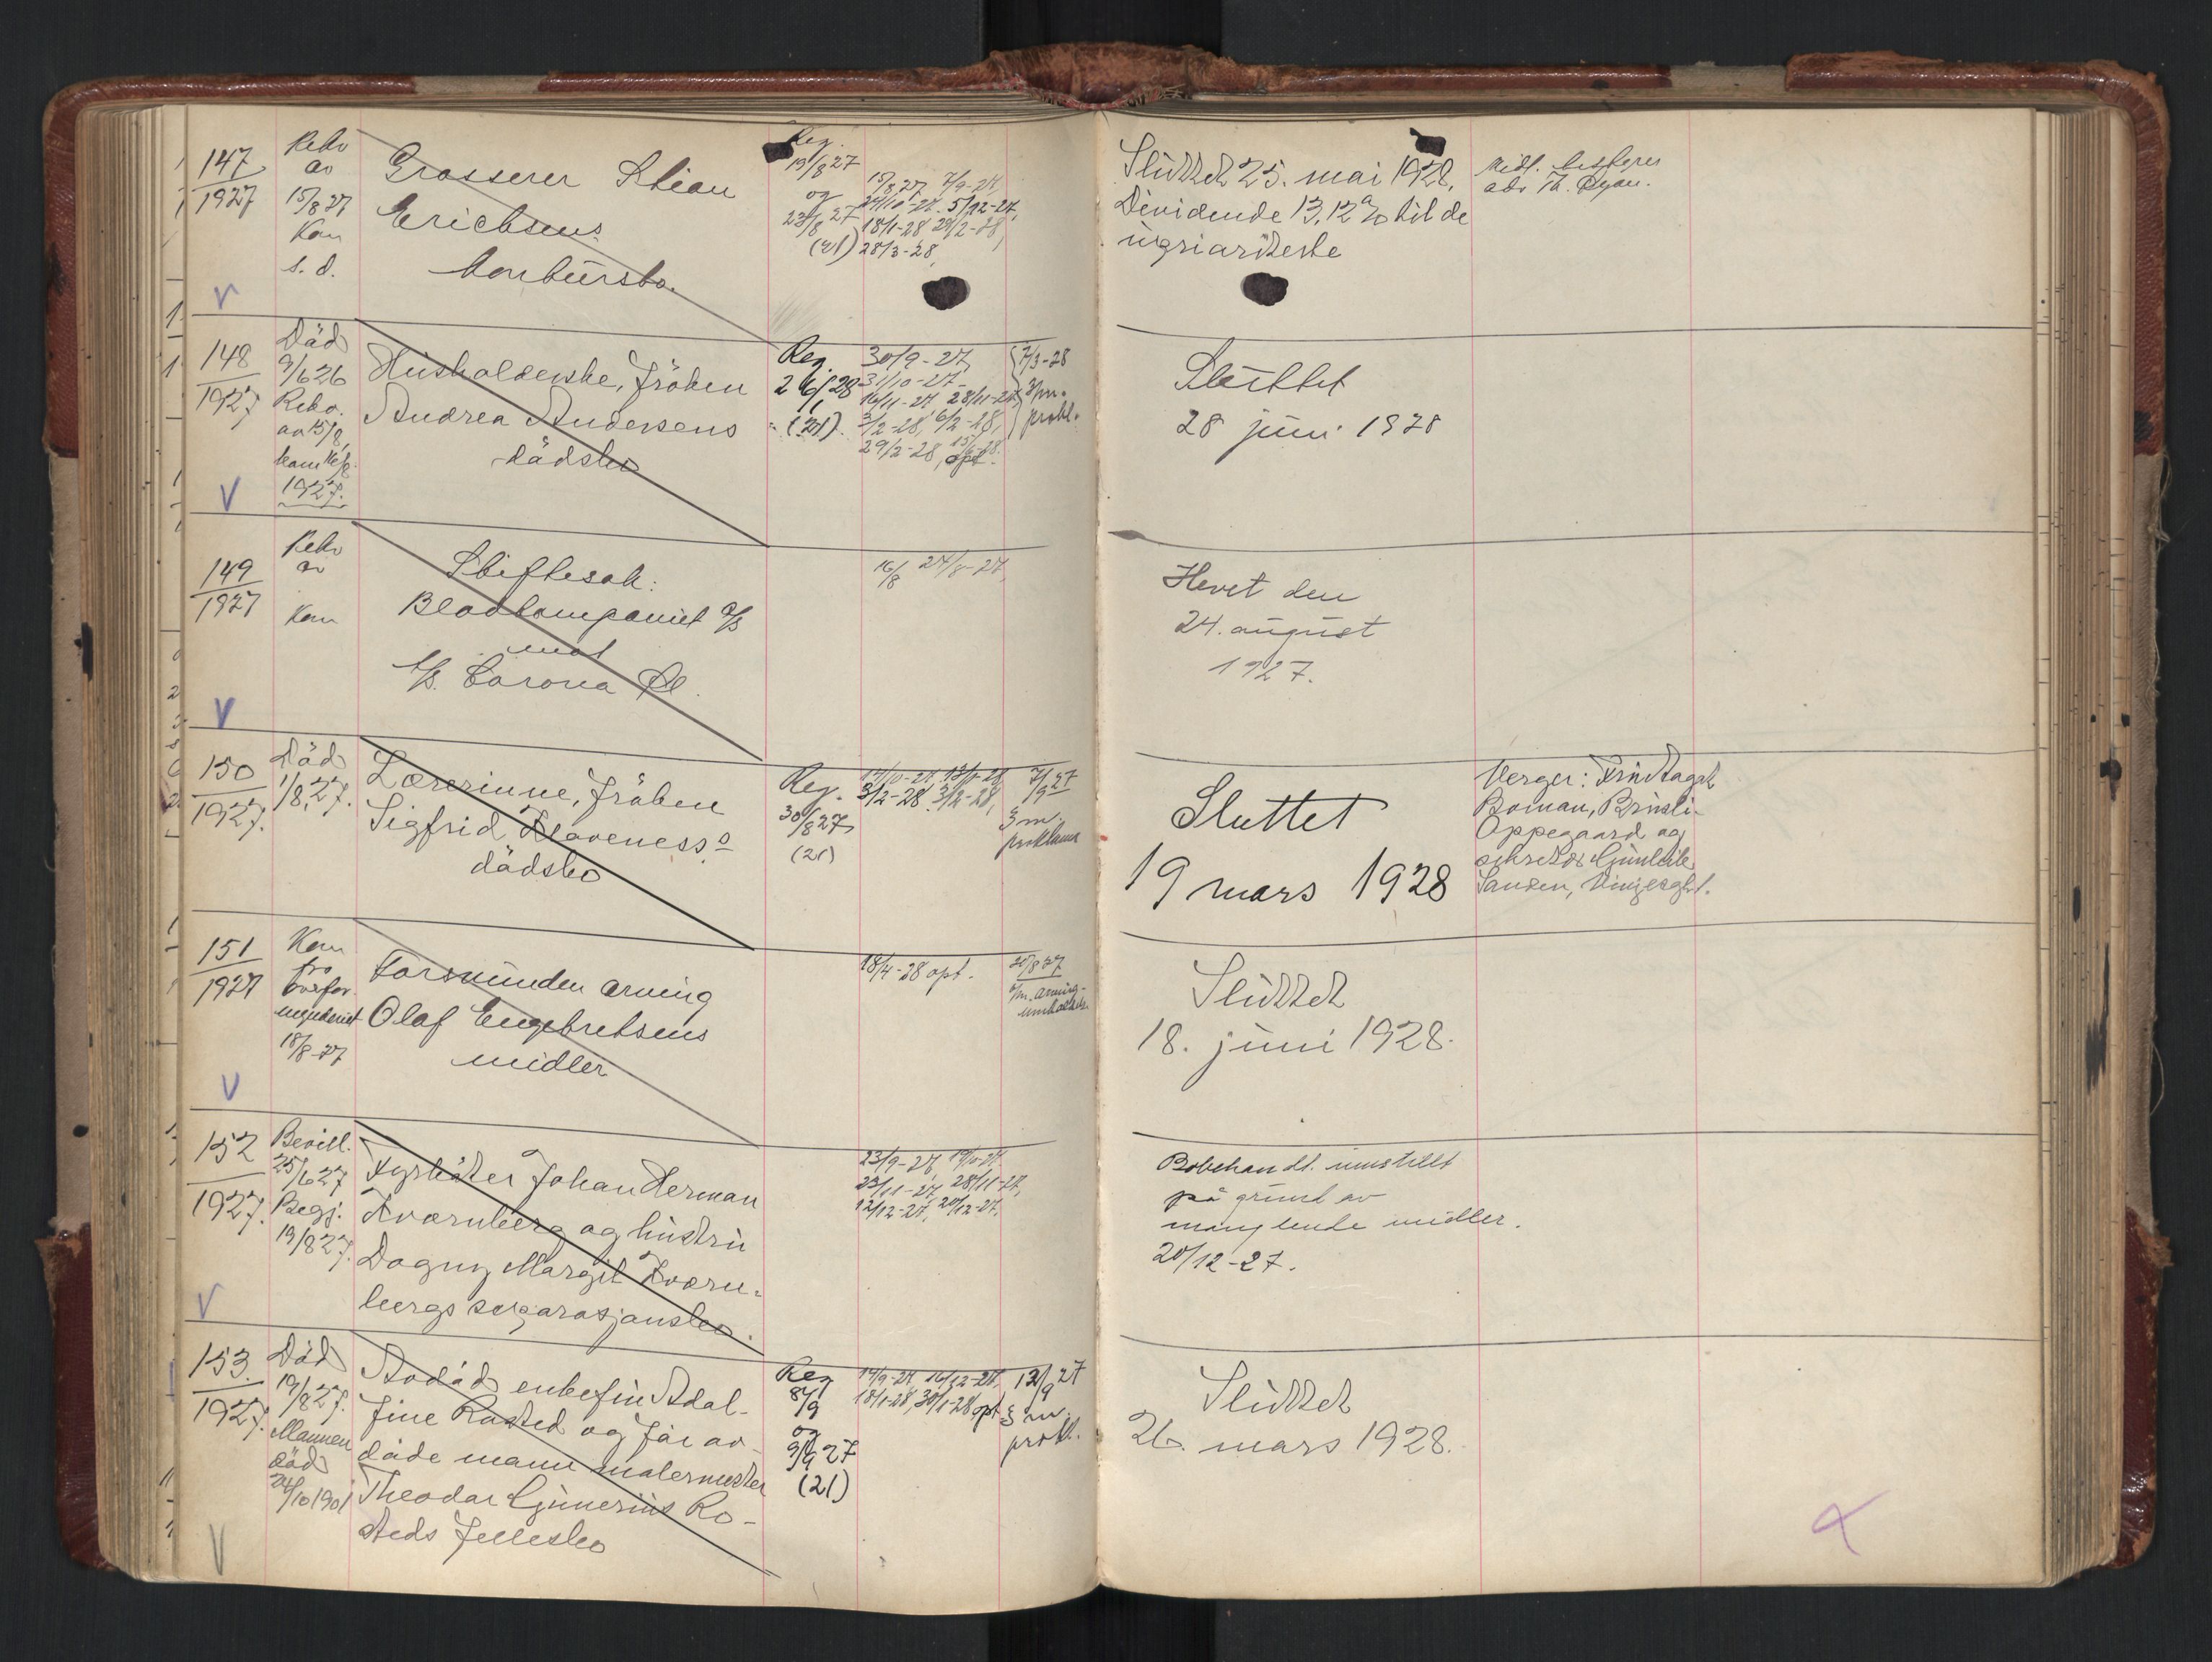 147
1927
Rekv
av
15/8 27
Kon
s. d.
Grosserer Stian
Erichsens
konkursbo.
Reg.
19/8 27
og
23/8 27
(21)
15/8 27, 7/9-27,
24/10-27. 5/12-27,
18/1-28 29/2-28,
28/3-28,
Sluttet 25. mai 1928,
Dividende 13,12 % til de
uprioriterte
Midl. bestyrer
adv Th. Ryan.
148
1927
Död
9/6 26
Rekv.
av 15/8,
1927.
Husholderske, fröken
Andrea Andersens
dödsbo
Reg.
26/1 28
(21).
30/9-27,
31/10-27
16/11-27 28/11-27
3/2-28, 6/2-28,
29/2-28, opt.
7/3-28
3 m.
prokl.
Sluttet
28 juni 1928
149
1927
Rekv
av
Kon
Skiftesak:
Bladkompaniet A/S
mot
A/S. Corona
16/8 24/8-27,
Hevet den
24. august
1927.
150
1927.
Död
1/8, 27.
Lærerinne, fröken
Sigfrid Klaveness's
dödsbo
Reg.
30/8 27
(21)
17/10-27, 13/1-28,
3/2-28. 3/2-28,
7/9 27
3 m.
proklama
Sluttet
19 mars 1928
Verger: Fru Dagat
Boman, Brusli-
Oppegaard og
Jansen,
151
1927
Kom
fra
overfor
mynderiet
18/8-27
Formünden arving
Olaf Engebretsens
midler
18/4-28 opt.
20/8 27
Sluttet
18. juni 1928.
152
1927.
Bevill.
25/6 27
Begj.
19/8 27.
Fyrböter Johan Herman
Kvernberg og hustru
Dagny Margit Kvern-
bergs separasjonsbo.
23/9-27, 19/10-27,
23/11-27, 28/11-27,
12/12-27, 20/12-27.
Bobehandl. innstillt
på grund av
manglende midler.
20/12-27.
153.
1927.
Död
19/8 27.
Mannen
död
24/10 1901
Avdöd enkefru Adol-
fine Rosted og før av-
døde mann malermester
Theodor Gunerius Ro-
steds fellesbo
Reg
8/9
og
9/9 27
(21)
14/9-27, 16/12-27,
18/1-28, 30/1-28 opt
12/9 27
3 m.
prokl.
Sluttet
26. mars 1928.